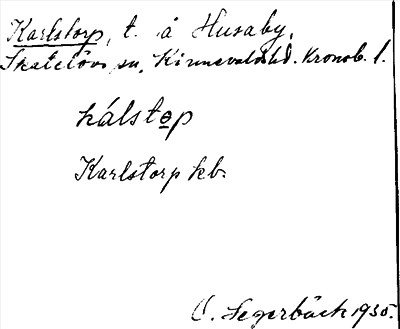 Karlstorp, t. å Husaby,
Skatelövs sn, Kinnevalds hd. Kronob. l.
kálstop
Karlstorp kb.
O. Segerbäck 1930.